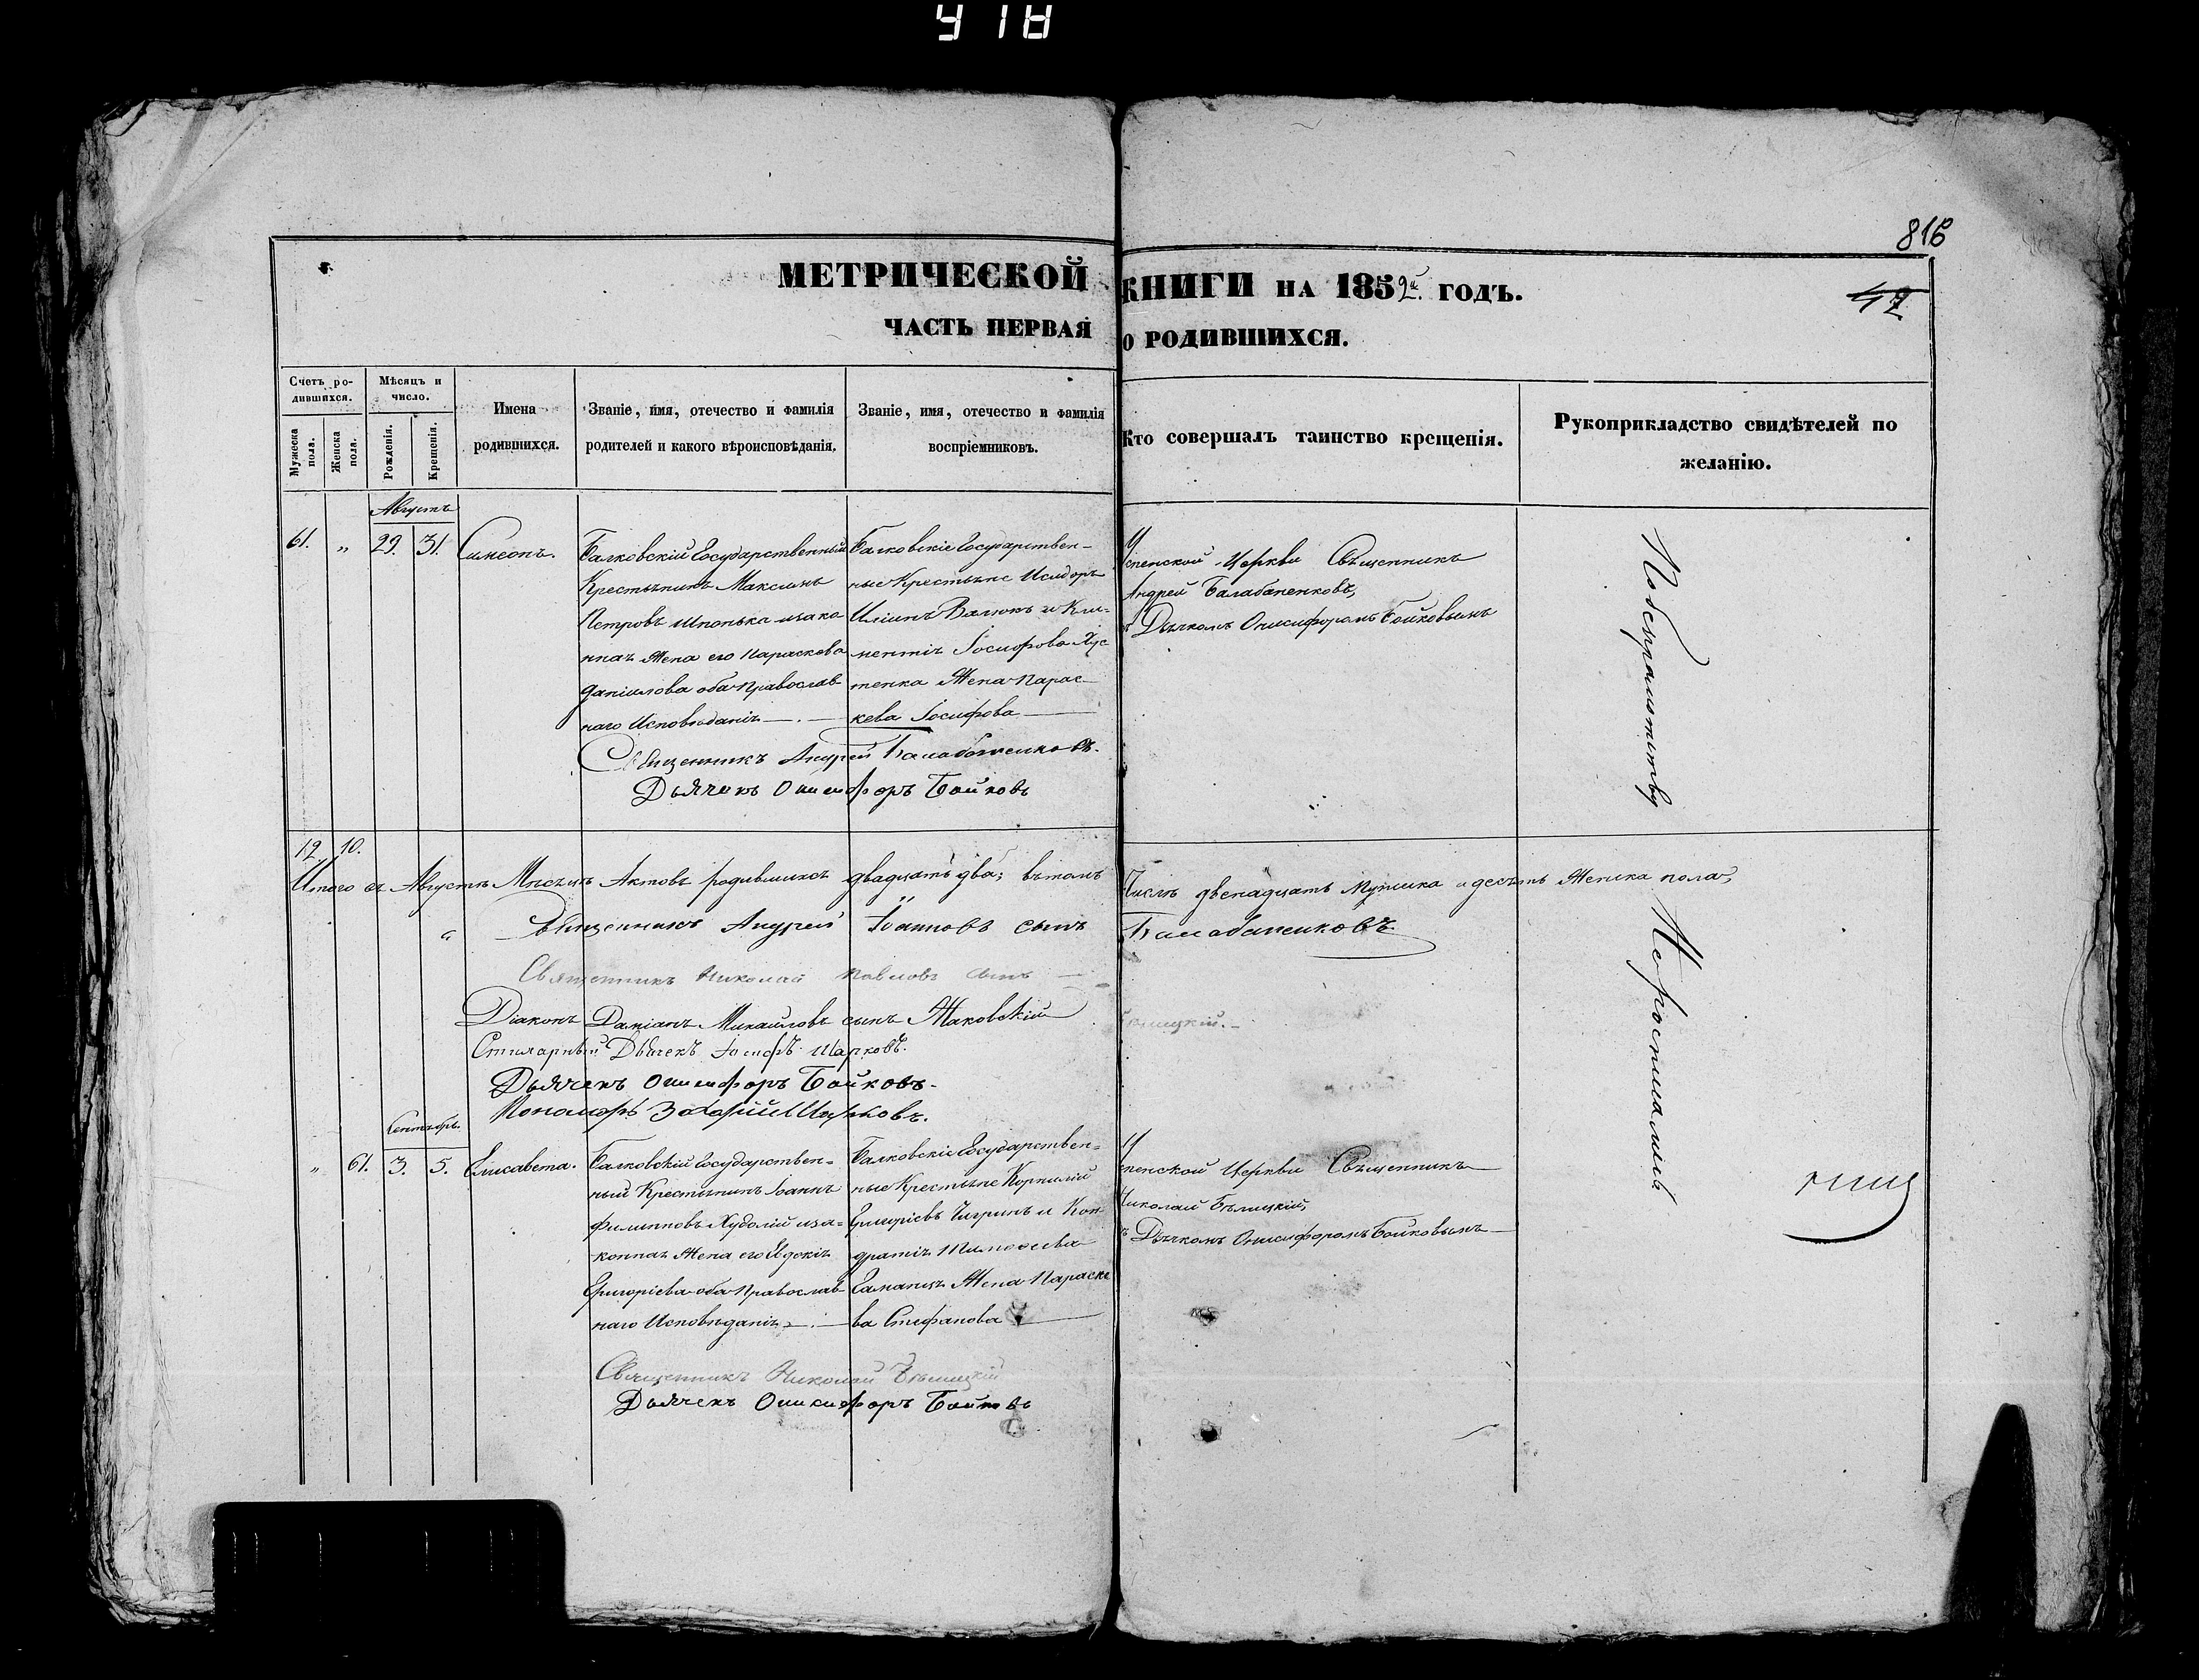 418
816
МЕТРИЧЕСКОЙ КНИГИ НА 1852й. ГОДЪ.
47
ЧАСТЬ ПЕРВАЯ О РОДИВШИХСЯ.
Счетъ ро-
дившихся.
Мужеска пола.
Женска пола.
Мѣсяцъ и
число.
Рожденія.
Крещенія.
Имена
родившихся.
Званіе, имя, отечество и фамилія
родителей и какого вѣроисповѣданія.
Званіе, имя, отечество и фамилія
воспріемниковъ.
Кто совершалъ таинство крещенія.
Рукоприкладство свидѣтелей по
желанію.
Августъ
61. „ 29. 31. Симеонъ.
Балковскій Государственный
Крестьянинъ Максимъ
Петровъ Шпонька изако
нная Жена его Параскева
Даніилова оба православ
наго Исповѣданія
Балковскіе Государствен-
ные Крестьяне Исидоръ
Иліинъ Валюкъ и Кли-
ментія Іосифова Хус
тенка Жена Парас
кева Іосифова
Успенской Церкви Священникъ
Андрей Балабаненковъ,
Дьячкомъ Онисифоромъ Бойковымъ
Священникъ Андрей Балабаненковъ.
Дьячекъ Онисифоръ Бойковъ
12. 10.
Итого въ Августѣ Мѣсяцѣ Актовъ родившихся двадцать два; втомъ Числѣ двенадцать Мужска и десять Женска пола,
Священникъ Андрей Іоанновъ сынъ Балабаненковъ
Священникъ Николай Павловъ сынъ Бѣлицкій.
Діаконъ Даміанъ Михайловъ сынъ Маковскій
Дьячекъ Іосифъ Шарковъ.
Дьячекъ Онисифоръ Бойковъ.
Пономарь Захарій Шарковъ.
Сентябрь.
„ 61. 3. 5. Елисавета.
Балковскій Государствен-
ный Крестьянинъ Іоаннъ
Филипповъ Худолій иза-
конная Жена его Евдокія
Григоріева оба православ
наго Исповѣданія
Балковскіе Государствен-
ные Крестьяне Корнилій
Григоріевъ Чигринъ и Кон
дратія Тимоѳеева
Жена Параске
ва Стефанова
Успенской Церкви Священникъ
Николай Бѣлицкій,
Дьячкомъ Онисифоромъ Бойковымъ
Священникъ Николай Бѣлицкій
Дьячекъ Онисифоръ Бойковъ